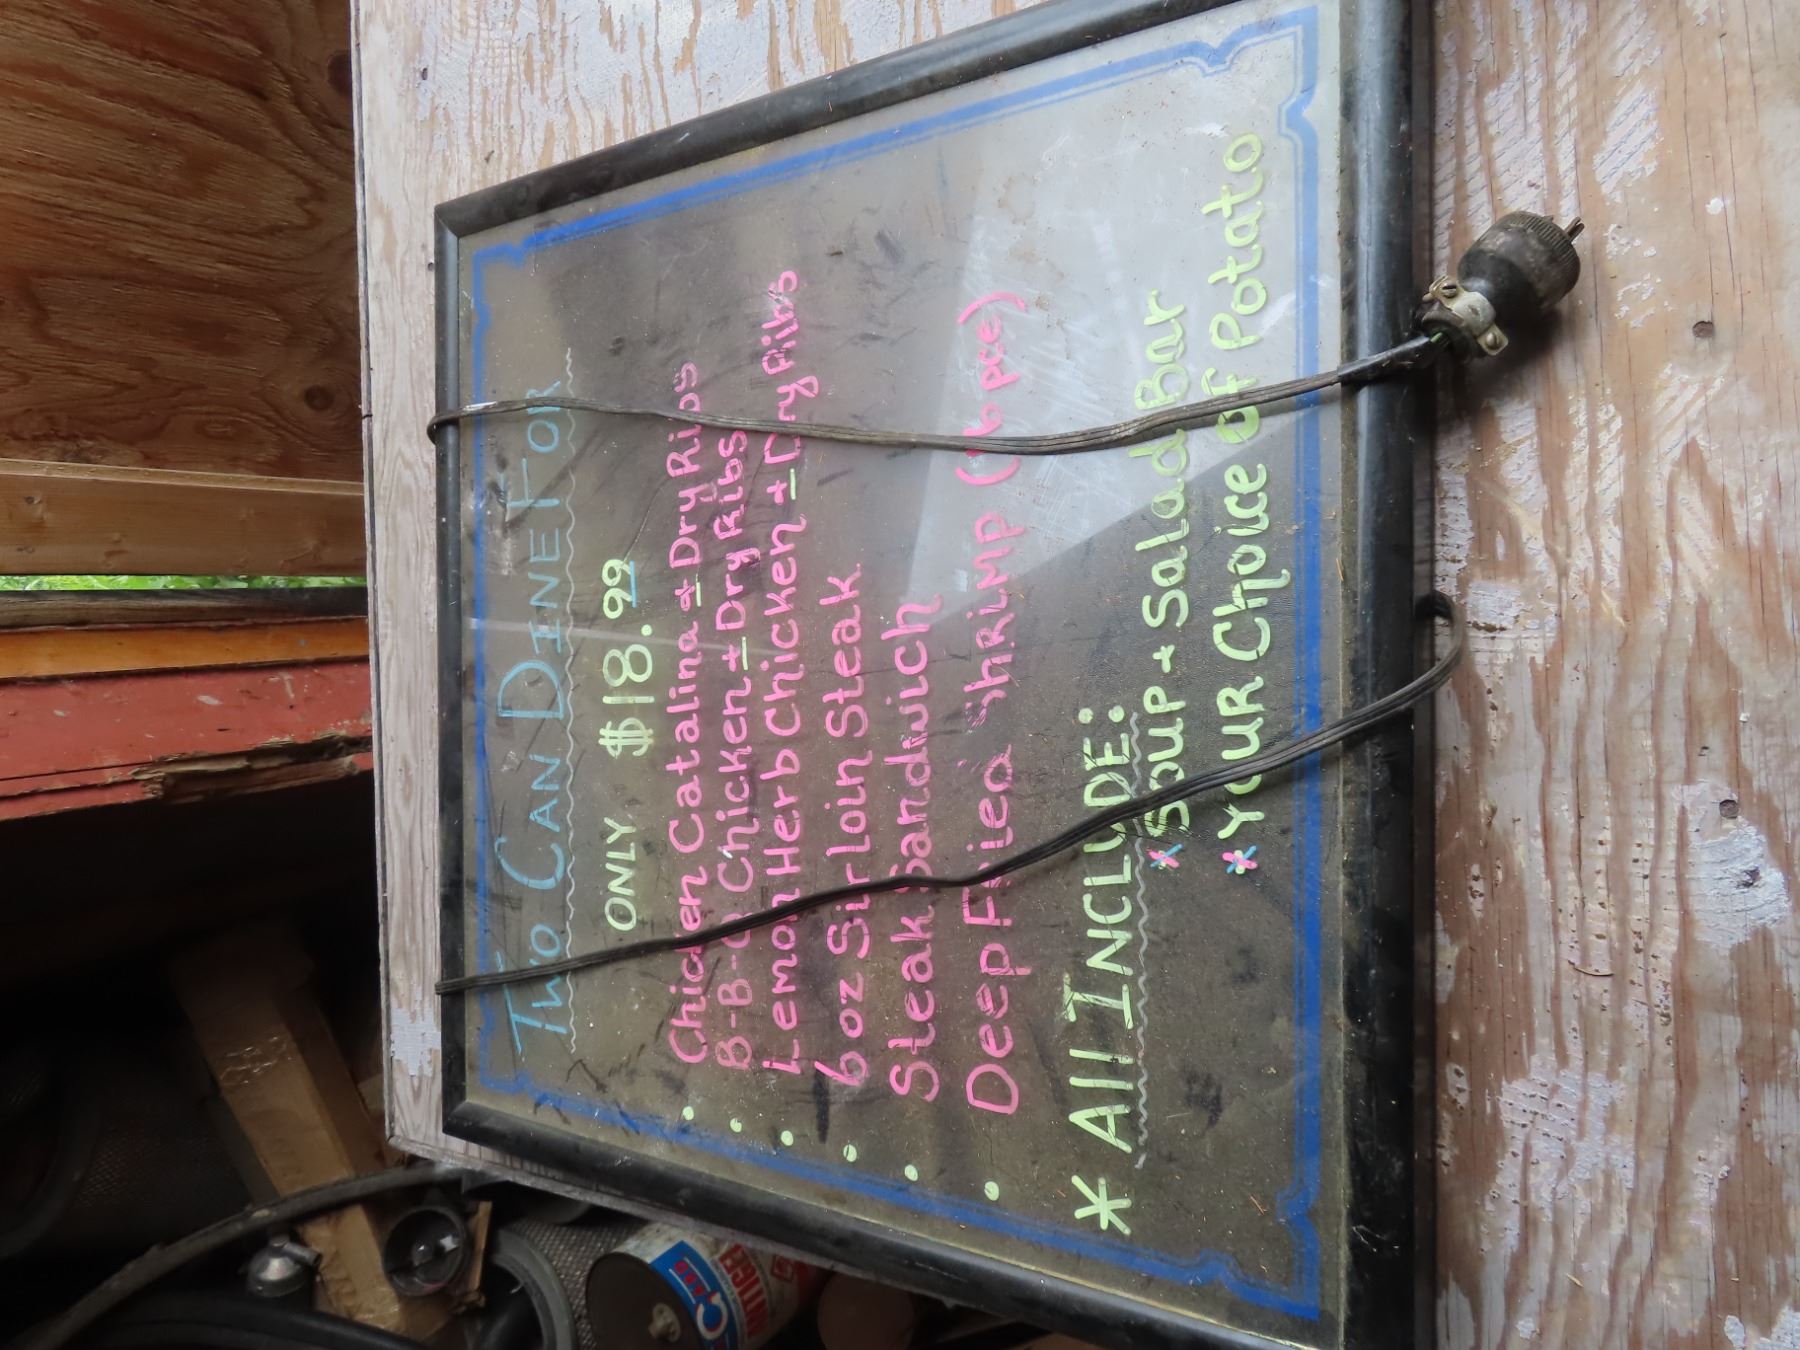 Two Can Dine For
ONLY $18.99
• Chicken Catalina + Dry Ribs
• B-B-Q Chicken + Dry Ribs
• Lemon Herb Chicken + Dry Ribs
• 6oz Sirloin Steak
• Steak Sandwich
• Deep Fried Shrimp pce)
* All INCLUDE:
* Soup + Salad Bar
* Your Choice of Potato